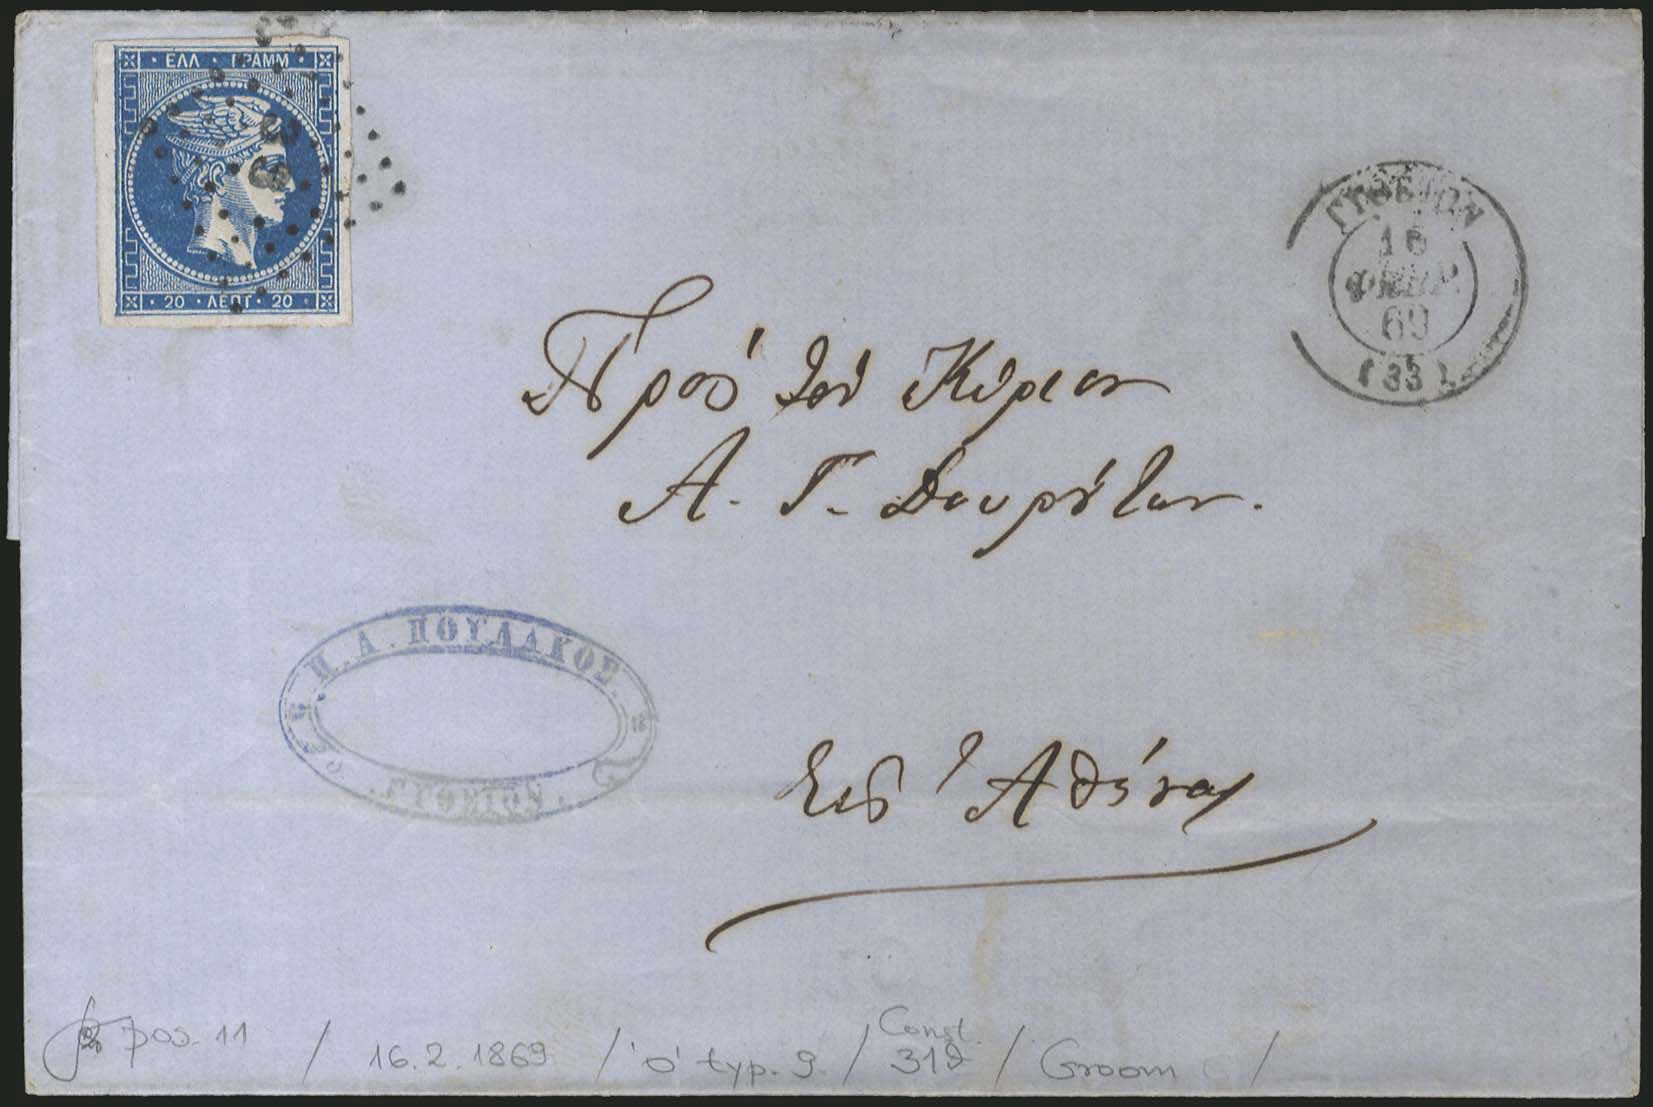 ΕΛΛ · ΓΡΑΜΜ ·
20 · ΛΕΠΤ · 20
33
ΓΥΘΕΙΟΝ
16
ΦΕΒΡ.
69
(33)
Πρὸς τὸν Κύριον
Α. Γ.
Π. Α. ΠΟΥΛΑΚΟΣ.
ΓΥΘΕΙΟΝ.
Εἰς Ἀθήνας
pos. 11 / 16.2.1869 / 'O' typ. 9. / Const. / Groom /